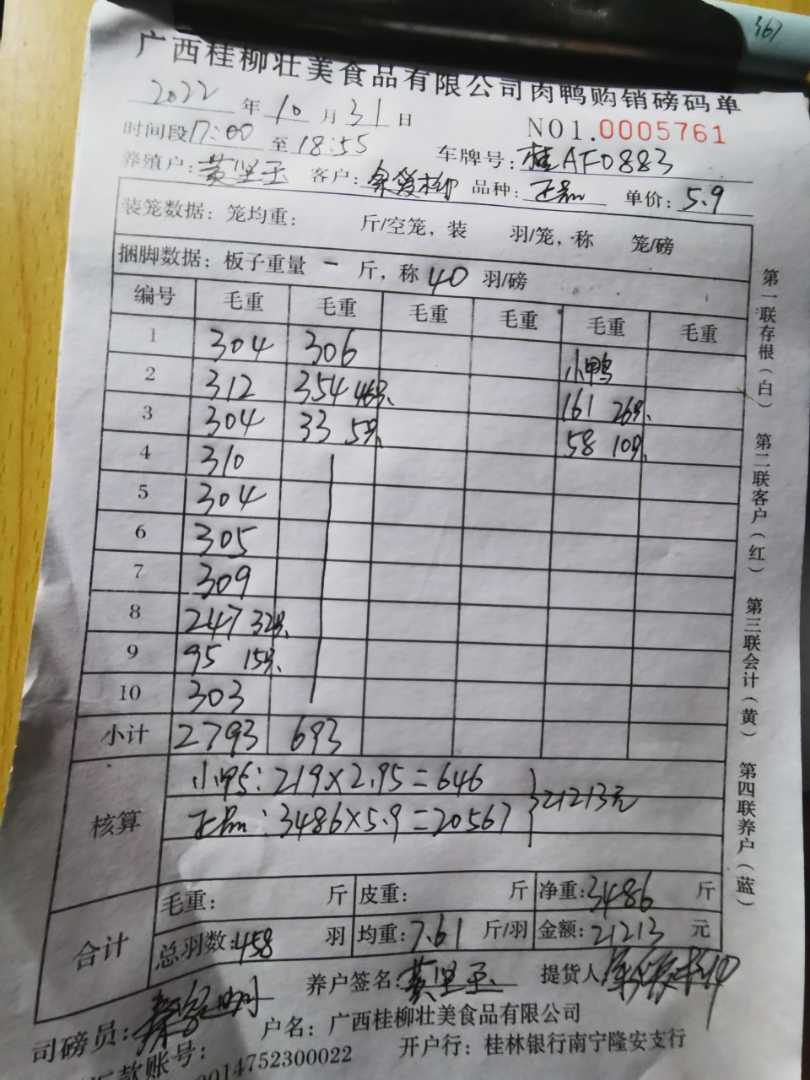 367
广西桂柳壮美食品有限公司肉鸭购销磅码单
2022 年 10 月 31 日
NO1.0005761
时间段 17:00 至 18:55 车牌号: 桂AF0883
养殖户: 黄坚玉 客户: 品种: 正品 单价: 5.9
装笼数据: 笼均重: 斤/空笼, 装 羽/笼, 称 笼/磅
捆脚数据: 板子重量 一 斤, 称 40 羽/磅
编号 毛重 毛重 毛重 毛重 毛重 毛重
1 304 306 小鸭
2 312 354 46只 161 26只
3 304 33 5只 58 10只
4 310
5 304
6 305
7 309
8 247 32只
9 95 15只
10 303
小计 2793 693
核算
小鸭: 219×2.95=646
正品: 3486×5.9=20567 } 21213元
合计
毛重: 斤 皮重: 斤 净重: 3486 斤
总羽数: 458 羽 均重: 7.61 斤/羽 金额: 21213 元
司磅员: 养户签名: 黄坚玉 提货人
户名: 广西桂柳壮美食品有限公司
款账号: 0014752300022 开户行: 桂林银行南宁隆安支行
第一联存根(白)
第二联客户(红)
第三联会计(黄)
第四联养户(蓝)